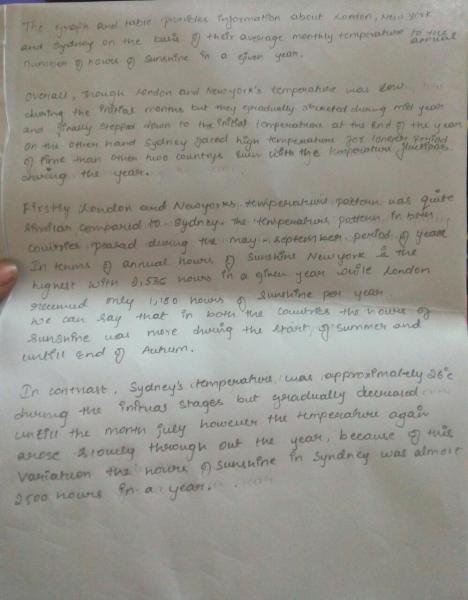 The graph and table provides information about London, New york
and Sydney on the basis of their average monthly temperature to the annual
number of hours of sunshine in a given year.
Overall, though London and Newyork's temperature was low
during the initial months but they gradually during mid year
and finally stepped down to the initial temperature at the end of the year
on the other hand Sydney faced high temperature for longer period
of time than other two countrys even with the temperature
during the year.
Firstly London and Newyorks, temperature pattern was quite
similar compared to Sydney. The temperature pattern in both
countries peaked during the may - september period of year
In terms of annual hours of sunshine New york is the
highest with 2,535 hours in a given year wile London
received only 1,180 hours of sunshine per year
we can say that in both the countries the hours of
sunshine was more during the start of summer and
untill End of Autum.
In contrast, Sydney's temperature was approximately 25°c
during the initial stages but gradually decreased
untill the month july however the temperature again
arose slowely through out the year, because of this
variation the hours of sunshine in Syndney was almost
2500 hours in a year.